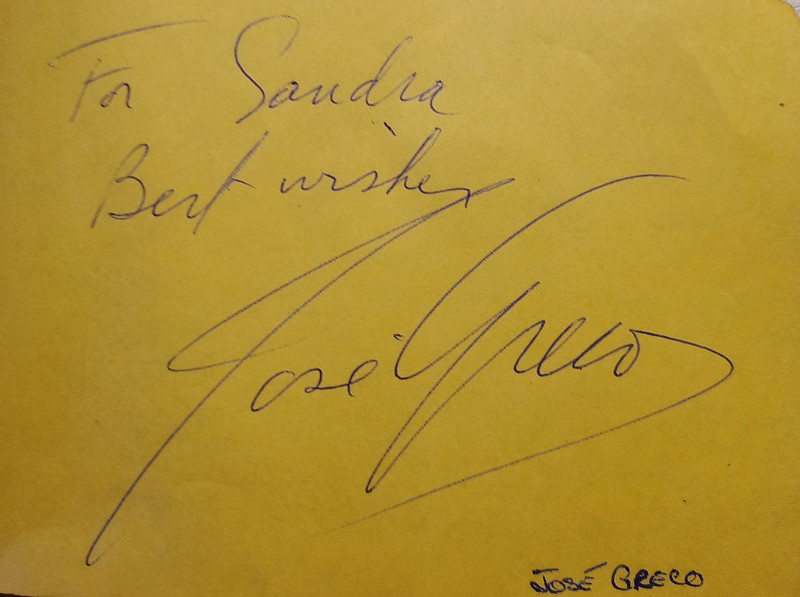 For Sandra
Best wishes
José Greco
JOSÉ GRECO